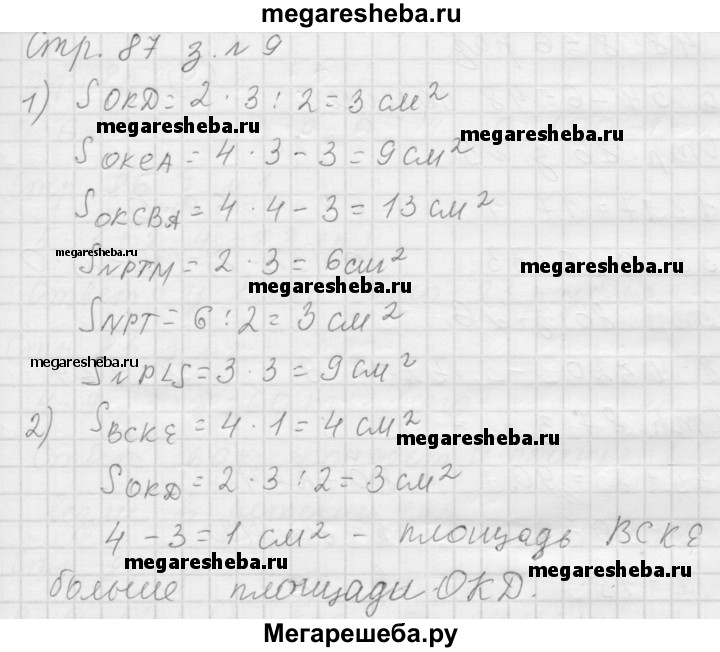 megaresheba.ru
Стр. 87 з. № 9
1) S OKD = 2 · 3 : 2 = 3 см²
megaresheba.ru
megaresheba.ru
S OKEA = 4 · 3 - 3 = 9 см²
S OKCBA = 4 · 4 - 3 = 13 см²
megaresheba.ru
S NPTM = 2 · 3 = 6 см²
megaresheba.ru
megaresheba.ru
S NPT = 6 : 2 = 3 см²
megaresheba.ru
S NPLS = 3 · 3 = 9 см²
2) S BCKE = 4 · 1 = 4 см²
megaresheba.ru
S OKD = 2 · 3 : 2 = 3 см²
4 - 3 = 1 см² - площадь BCKE
megaresheba.ru
megaresheba.ru
больше площади OKD.
Мегарешеба.ру